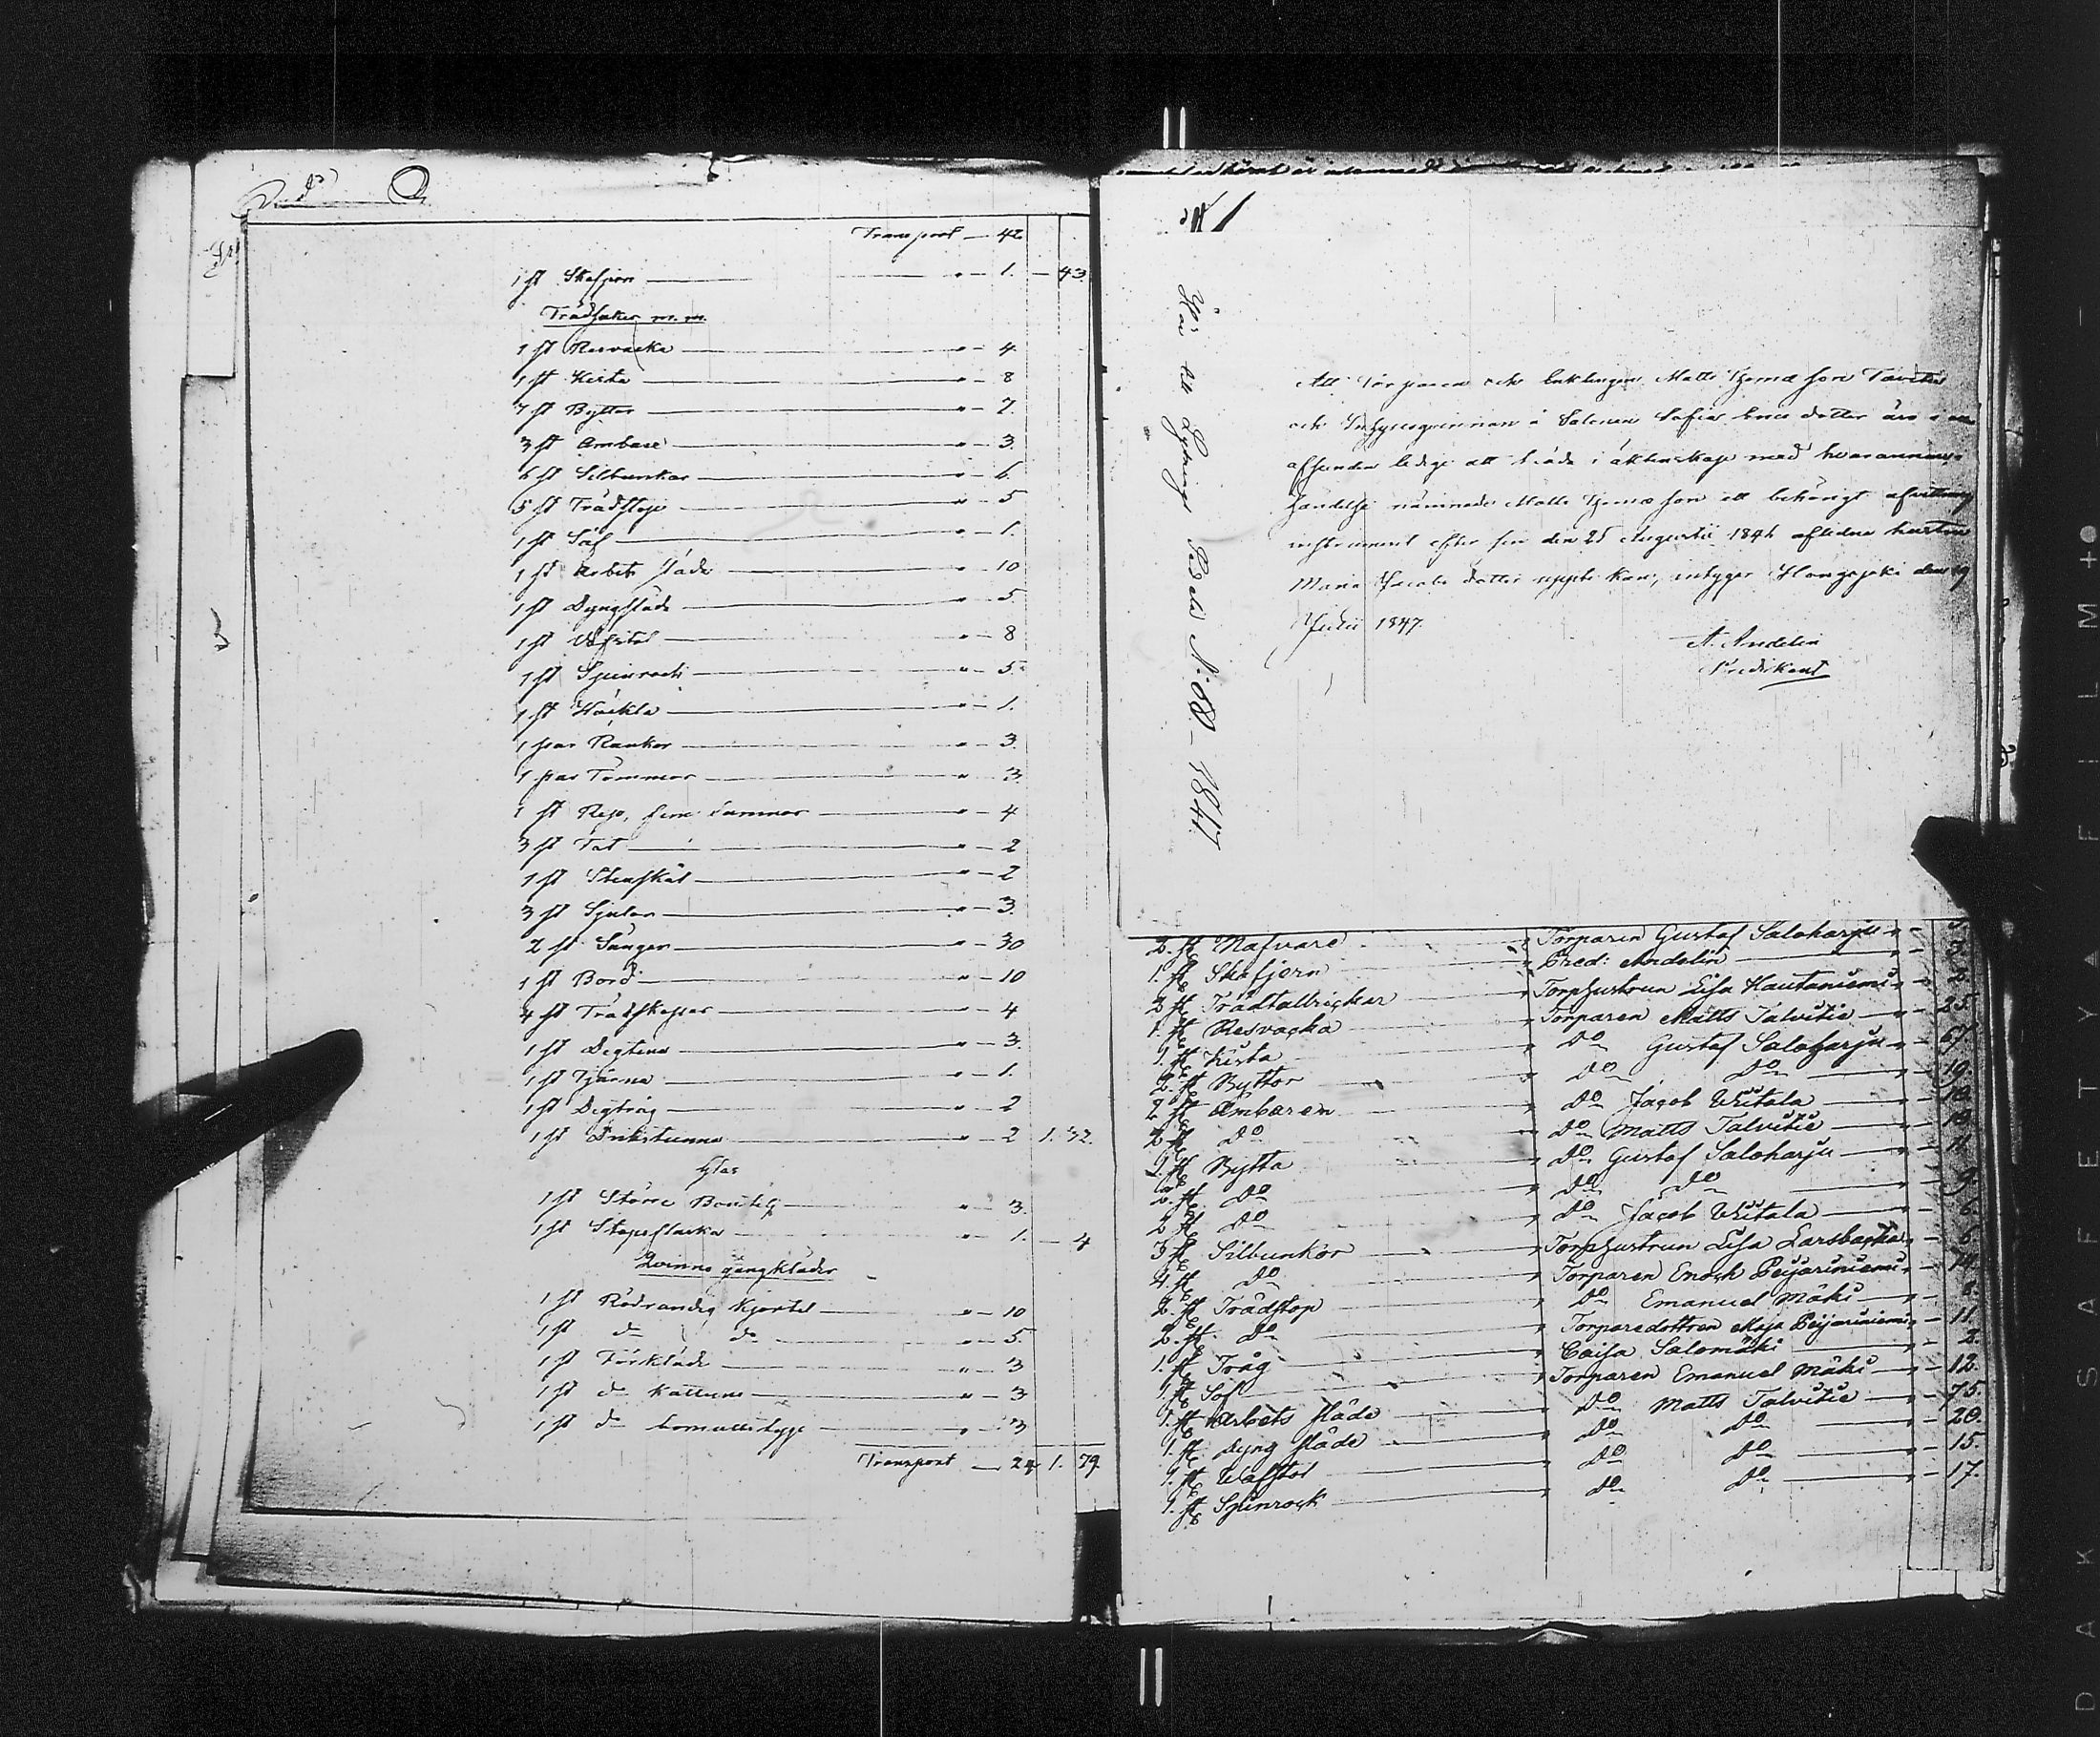 Transport — 42
1 st Skafjern — " — 1. — 43.
Trädsaker m. m.
1 st Resvacka — " — 4
1 st Kista — " — 8
7 st Byttor — " — 7.
3 st Ämbare — " — 3.
6 st Silbunkar — " — 6.
5 st Trädstop — " — 5
1 st Såf — " — 1.
1 st Arbets släde — " — 10
1 st Dyngsläde — " — 5.
1 st Väfstol — " — 8
1 st Spinrock — " — 5
1 st Häckla — " — 1.
1 par Rankor — " — 3.
1 par Tömmar — " — 3.
1 st Rep, fem famnar — " — 4
3 st Fat — " — 2
1 st Stenskål — " — 2
3 st — " — 3.
2 st Sängar — " — 30
1 st Bord — " — 10
4 st Trädskoppar — " — 4
1 st Degtina — " — 3.
1 st Tjärna — " — 1.
1 st Degtråg — " — 2
1 st Drikstunna — " — 2 1. 32.
Glas
1 st Större Boutelj — " — 3.
1 st Stopsflaska — " — 1. — 4
Qvinno gångkläder
1 st Rödrandig Kjortel — " — 10
1 st do do — " — 5.
1 st Förkläde — " — 3
1 st do Kattuns — " — 3
1 st do bomullstyg — " — 3
Transport — 24 1. 79.
N 1
Hör till Lysnings Bevis N:o 80 – 1847.
Att Torparen och Enklingen Matts Thomæ son Tavitie
och Inhysesqvinnan å Salonen Sofia Erics dotter äro i
afseenden ledige att träda i äktenskap med hvarannan,
händelse nämnde Matts Thomæ son ett behörigt afvittrings
instrument efter sin den 25 Augusti 1846 aflidne hustru
Maria Jacobs dotter uppte kan, intygar Hongojoki den 19
Julii 1847.
A. Andelin
Predikant
2. st Nafvare " Torparen Gustaf Saloharju " — 3.
1. st Skafjern " Pred: Andelin — " — 7.
2 st Trädtallrickar " Torphustrun Lisa Hautaniemi " — 2.
1. st Resvacka " Torparen Matts Talvitie — " — 25.
1. st Kista " Do Gustaf Saloharju " — 67.
2. st Byttor " Do Do — " — 19.
2 st Ämbaren " Do Jacob Wiitala — " — 10.
2 st Do " Do Matts Talvitie — " — 10.
1. st Bytta " Do Gustaf Saloharju — " — 11.
2. st Do " Do Do — " — 9.
2 st Do " Do Jacob Wiitala — " — 6.
3 st Silbunkor " Torphustrun Lisa Larsbacka " — 6.
4 st Do " Torparen Enoch Peijariniemi " — 14.
2. st Trädstop " Do Emanuel Mäki — " — 8.
2. st Do " Torparedottren Maja Peijariniemi " — 11.
1. st Tråg " Caisa Salomäki — " — 2.
1. st Såf " Torparen Emanuel Mäki — " — 12.
1. st Arbets släde " Do Matts Talvitie — " — 75.
1. st Dyng släde " Do Do — " — 20.
1. st Wäfstol " Do Do — " — 15.
1. st Spinrock " Do Do — " — 17.
DAK SAFETY ▲ FILM +●